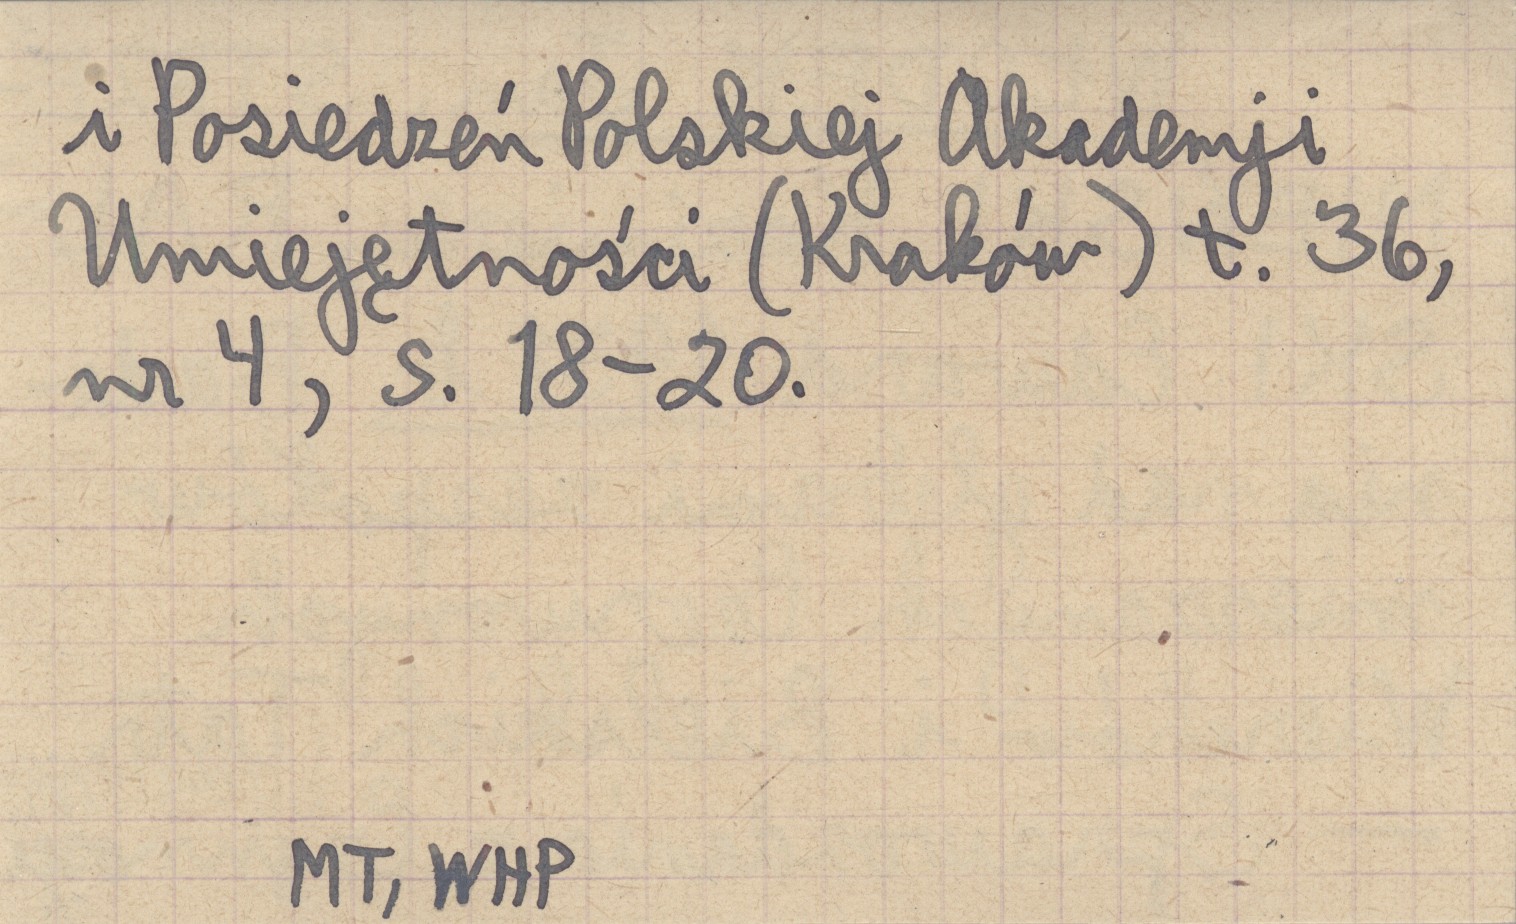 i Posiedzeń Polskiej Akademji
Umiejętności (Kraków) t. 36,
nr 4, s. 18-20.
MT, WHP